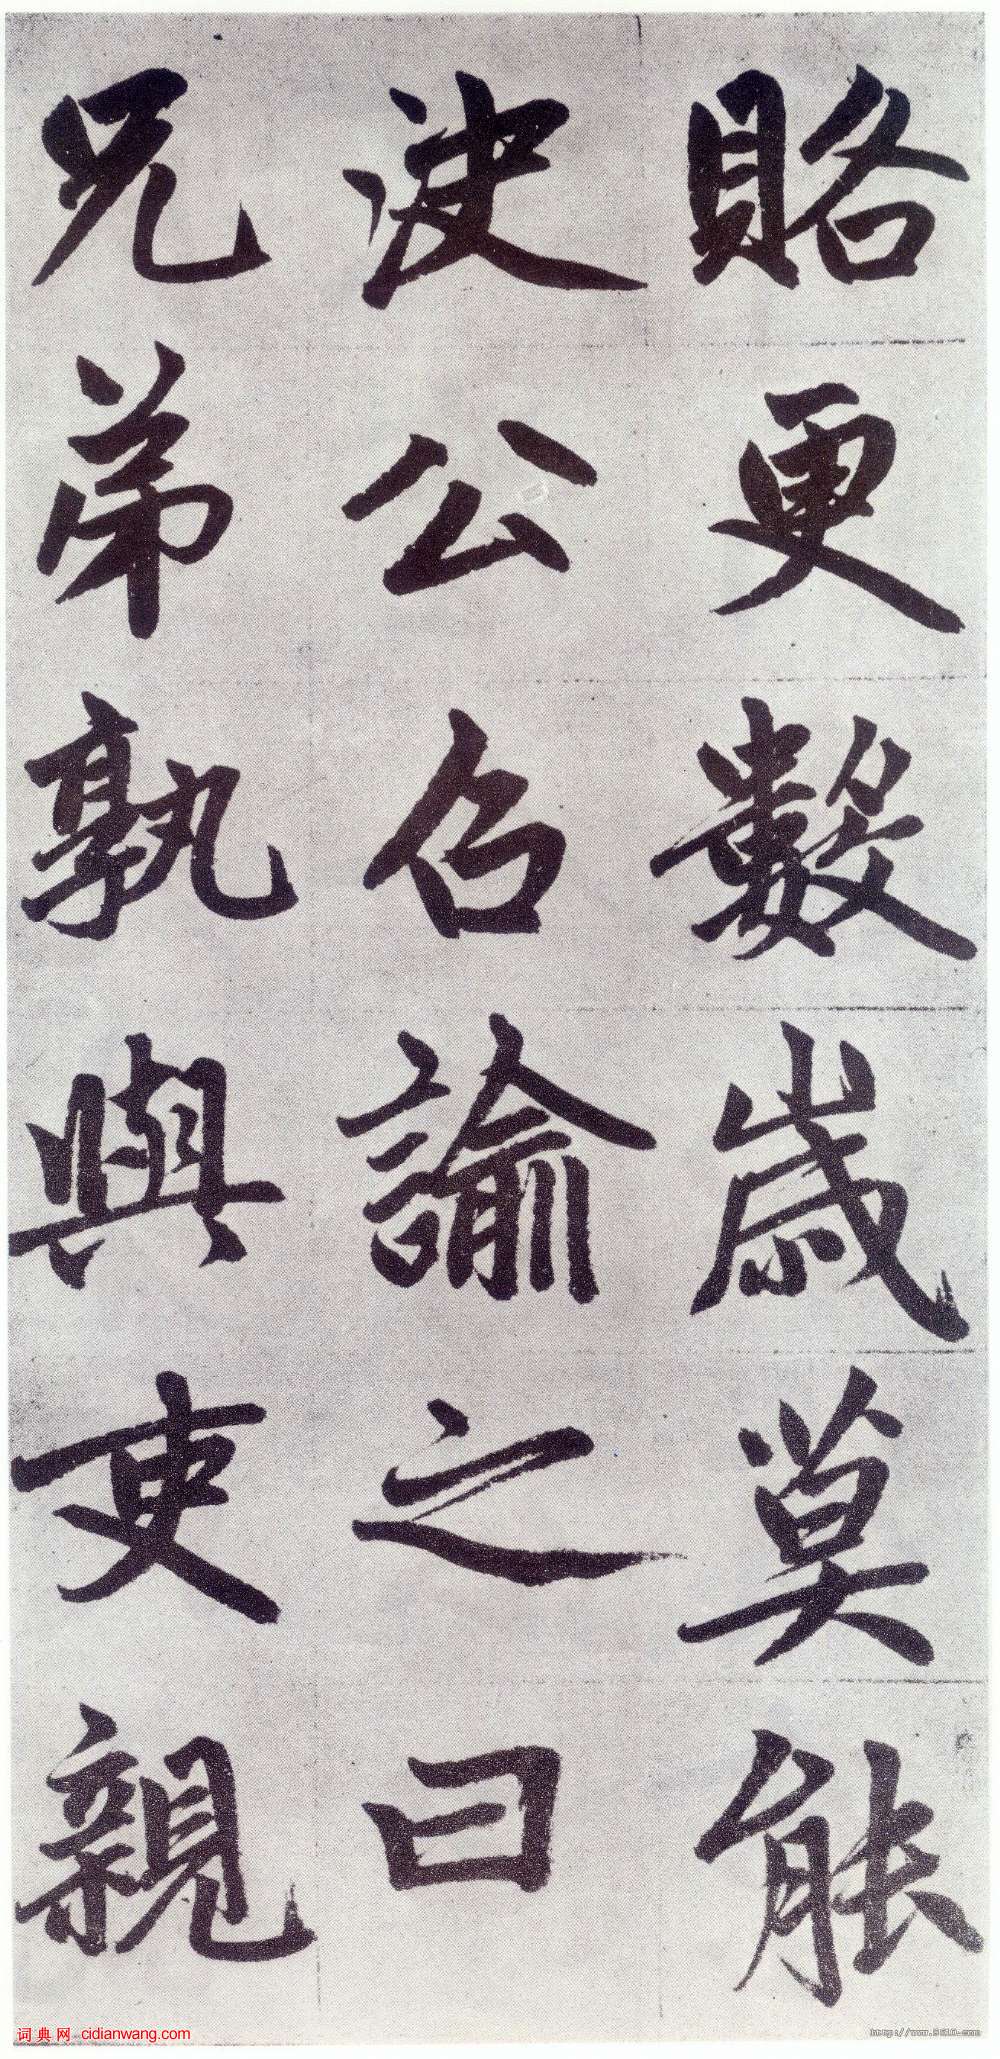 賂更數歲莫能
決公召諭之曰
兄弟孰與吏親
词典网:cidianwang.com